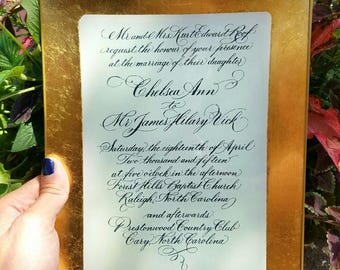 Mr. and Mrs. Kurt Edward Roof
request the honour of your presence
at the marriage of their daughter
Chelsea Ann
to
Mr. James Hilary Vick
Saturday, the eighteenth of April
Two thousand and fifteen
at five o'clock in the afternoon
Forest Hills Baptist Church
Raleigh, North Carolina
and afterwards
Prestonwood Country Club
Cary, North Carolina